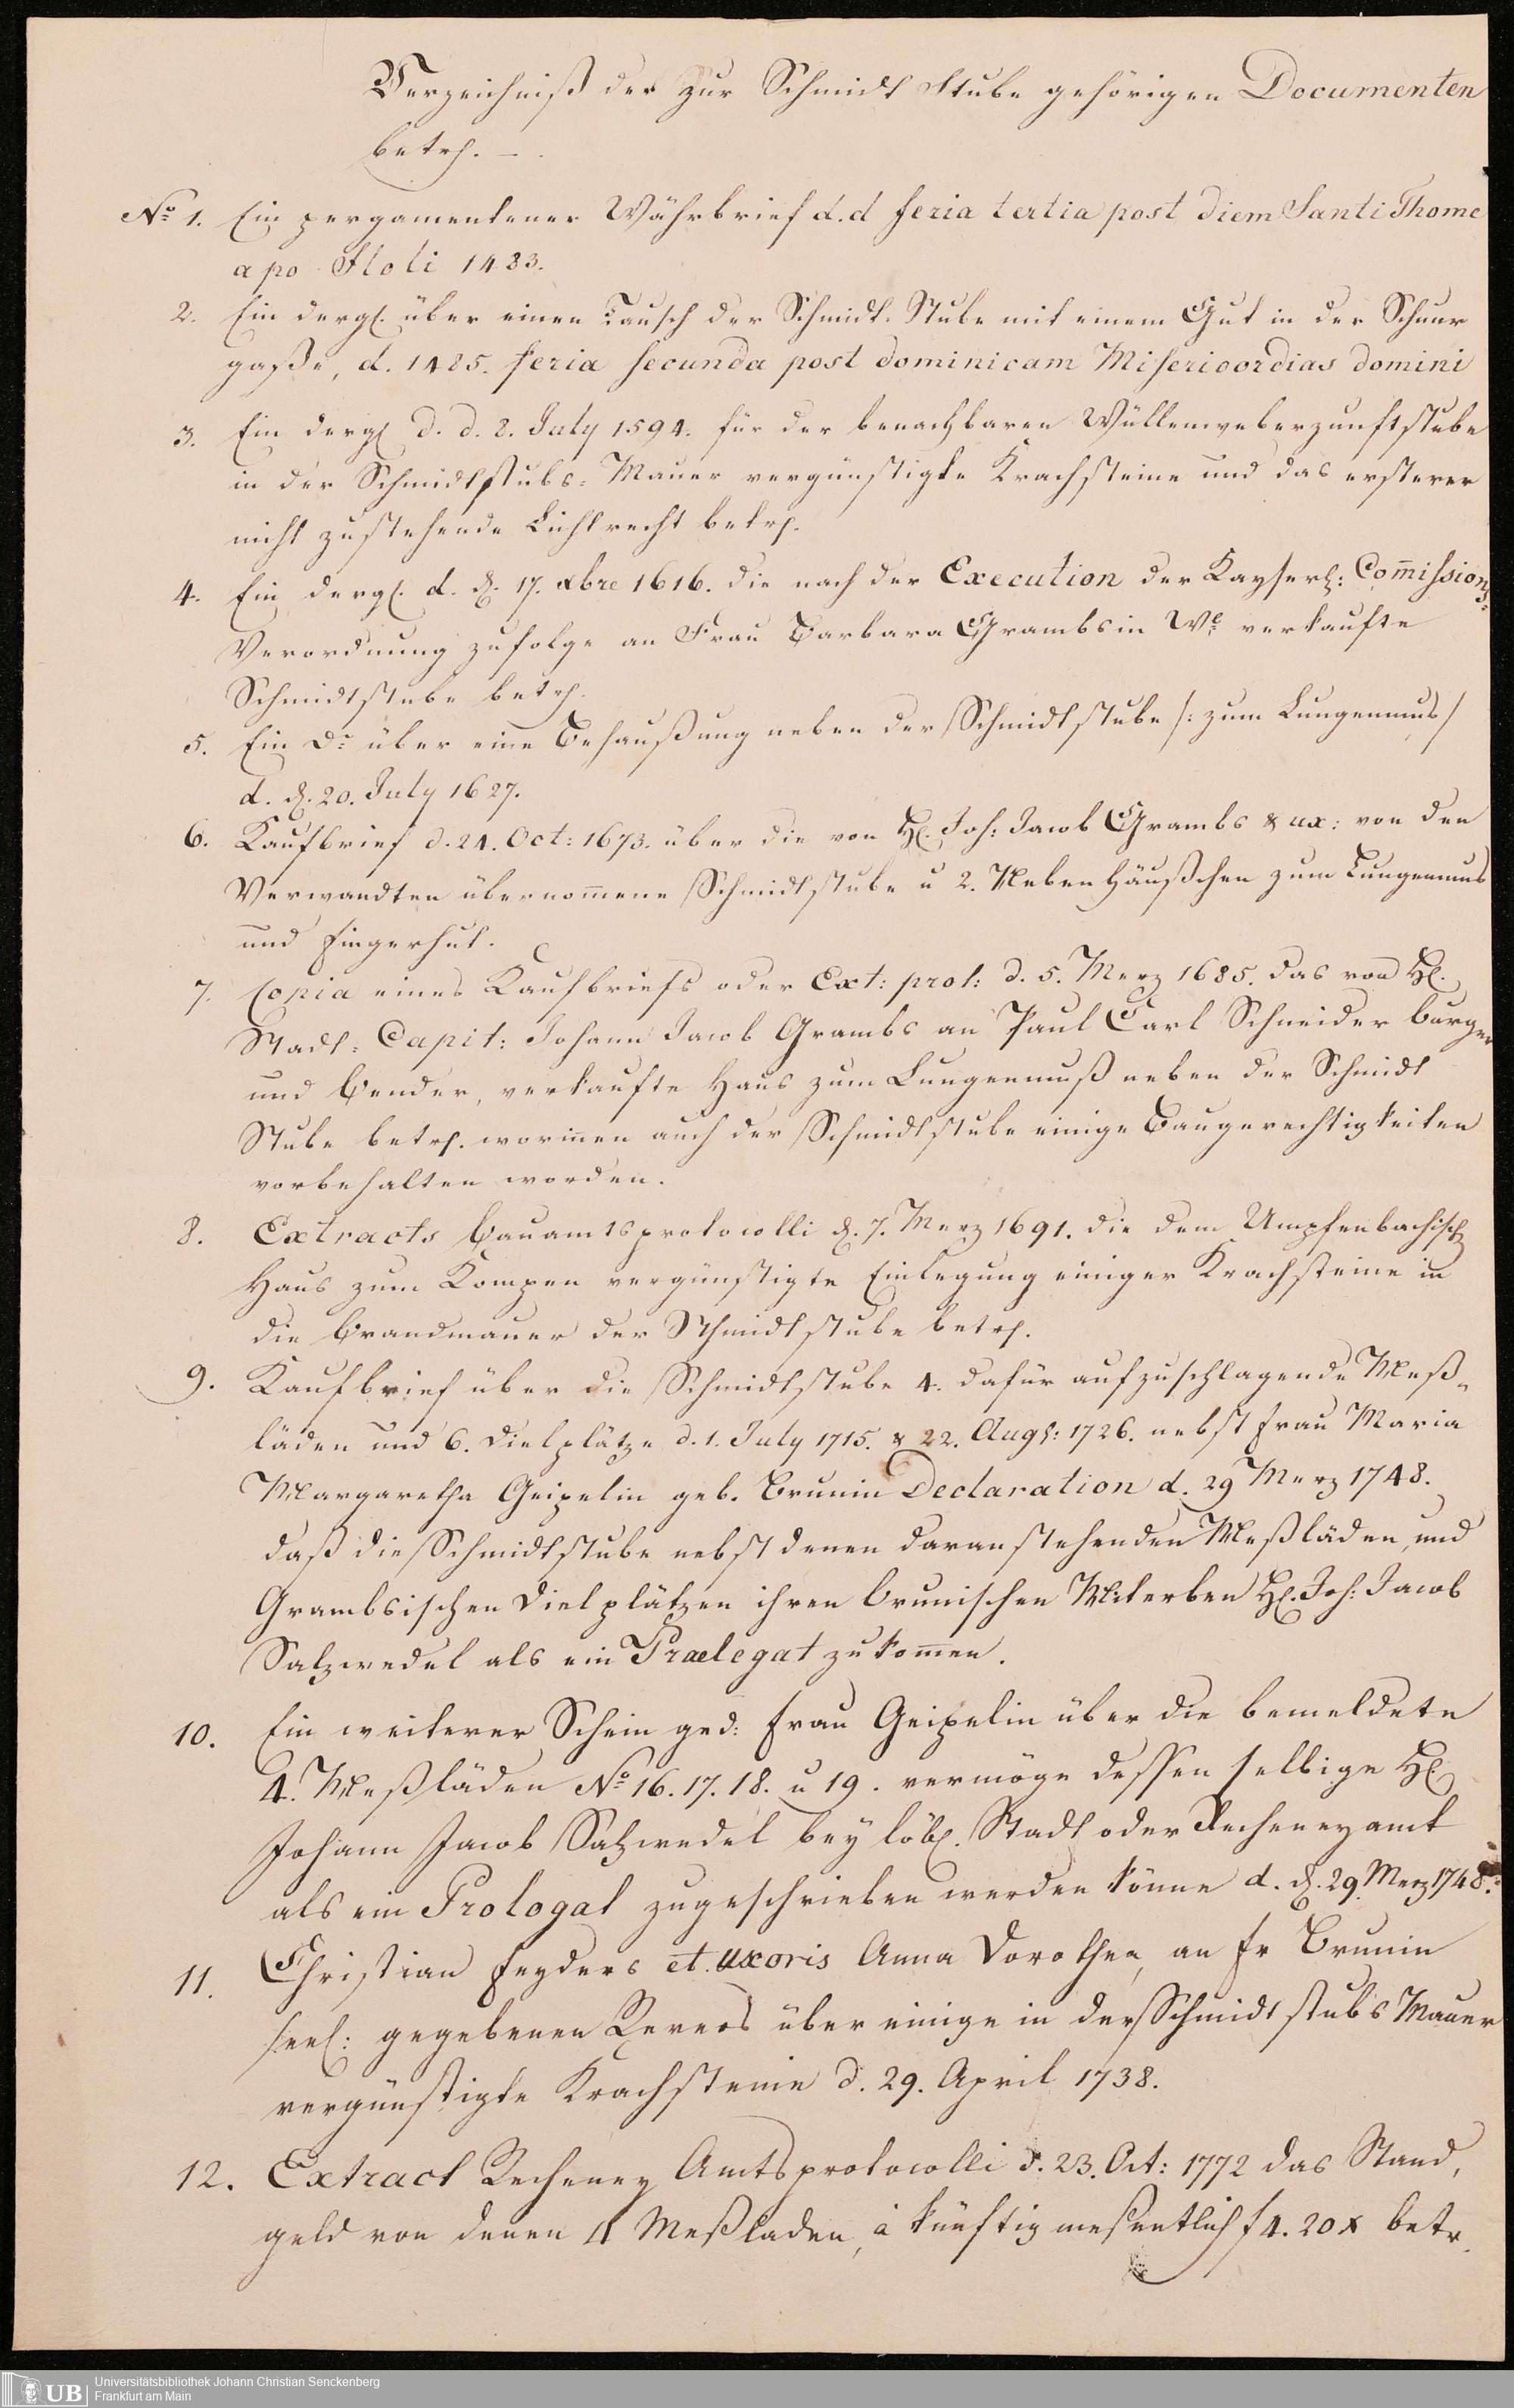 Verzeichniß der zur Schmidt Stube gehörigen Documenten
betrf. —
No 1. Ein pergamentener Währbrief d. d feria tertia post diem Santi Thome
apo Stoli 1483.
2. Ein dergl. über einen Tausch der Schmidt-Stube mit einem Gut in der Schnur
gaße, d. 1485. feria secunda post dominicam Misericordias domini
3. Ein dergl d. d. 8. July 1594. für der benachbaren Wüllenweberzunftstube
in der Schmidtstubs-Mauer vergünstigte Krachsteine und das ersterer
nicht zustehende Lichtrecht betrf.
4. Ein dergl. d. d. 17. xbre 1616. die nach der Execution der Kayserl: Com̄issions-
Verordnung zufolge an Frau Barbara Grambsin We verkaufte
Schmidtstube betrf.
5. Ein Do über eine Behaußung neben der Schmidtstube /: zum Lungenmus/
d. d. 20. July 1627.
6. Kaufbrief d. 24. Oct: 1673. über die von H. Joh: Jacob Grambs & ux: von den
Verwandten übernom̄ene Schmidtstube u 2. Neben Häußchen zum Lungenmus
und Fingerhut.
7. Copia eines Kaufbriefs oder Ext: prot: d. 5. Merz 1685. das von H.
Stadt-Capit: Johann Jacob Grambs an Paul Carl Schneider burger
und Bender, verkaufte Haus zum Lungenmuß neben der Schmidt
Stube betrf. worin̄en auch der Schmidtstube einige Baugerechtigkeiten
vorbehalten worden.
8. Extracts Bauamtsprotocolli d. 7. Merz 1691. die dem Umpfenbachisch
Haus zum Kompen vergünstigte Einlegung einiger Krachsteine in
die Brandmauer der Schmidtstube betrf.
9. Kaufbrief über die Schmidtstube 4. dafür aufzuschlagende Meß-
läden und 6. Dielplätze d. 1. July 1715. & 22. Augs: 1726. nebst Frau Maria
Margaretha Geipelin geb. Brunin Declaration d. 29 Merz 1748.
daß die Schmidtstube nebst denen daranstehenden Meßläden, und
Grambsischen Dielplätzen ihren Brunischen Miterben H. Joh: Jacob
Salzwedel als ein Praelegat zukom̄en.
10. Ein weiterer Schein ged: Frau Geipelin über die bemeldete
4. Meßläden No 16. 17. 18. u 19. vermöge dessen selbige H
Johann Jacob Salzwedel bey löbl. Stadt oder Recheneyamt
als ein Prologat zugeschrieben werden könne d. d. 29. Merz 1748.
11. Christian Feyders et. uxoris Anna Dorothea, an Fr Brunin
seel: gegebenen Revers über einige in der Schmidt stubs Mauer
vergünstigte Krachsteine d. 29. April 1738.
12. Extract Recheney Amtsprotocolli d. 23. Oct: 1772 das Stand,
geld von denen 4 Meßladen, à künftig meßentlich f 4. 20 x betr.
UB
Universitätsbibliothek Johann Christian Senckenberg
Frankfurt am Main